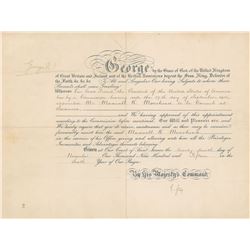 George R.I.
George, by the Grace of God, of the United Kingdom
of Great Britain and Ireland and of the British Dominions beyond the Seas, King, Defender of
the Faith, &c. &c. &c. To all and Singular Our loving Subjects to whom these
Presents shall come, Greeting!
Whereas Our Good Friend the President of the United States of America
has by a Commission bearing date the day of September,
appointed Mr. Maxwell K. Moorhead to be Consul at
And We having approved of this appointment
according to the Commission before mentioned, Our Will and Pleasure are and
We hereby require that you do receive, countenance, and as there may be occasion
favourably assist him the said Maxwell K. Moorhead
in the exercise of his Office, giving and allowing unto him all the Privileges
Immunities and Advantages thereunto belonging.
Given at Our Court of Saint James, the day of
One Thousand Nine Hundred and Fifteen in the
Sixth Year of Our Reign.
By His Majesty's Command.